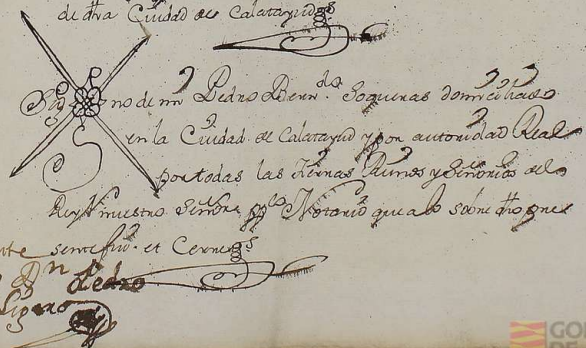 de dha Ciudad de Calatayud
Sig no de mi Pedro Berndo Soquenas domiciliado
en la Ciudad de Calatayud y por autoridad Real
por todas las tierras Reinos y Señorios del
Rey Nuestro Señor pco Notario que a lo sobre dho pre
sente fui et Cerre
Dn Pedro